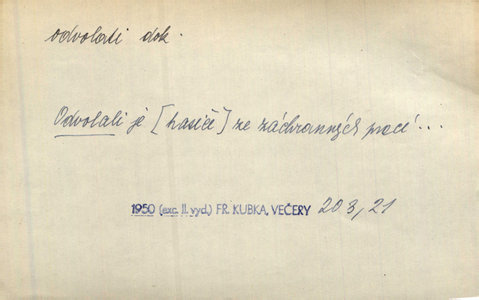 odvolati dok.
Odvolali je [hasiče] ze záchranných prací...
1950 (exc. II. vyd.) FR. KUBKA, VEČERY 203, 21